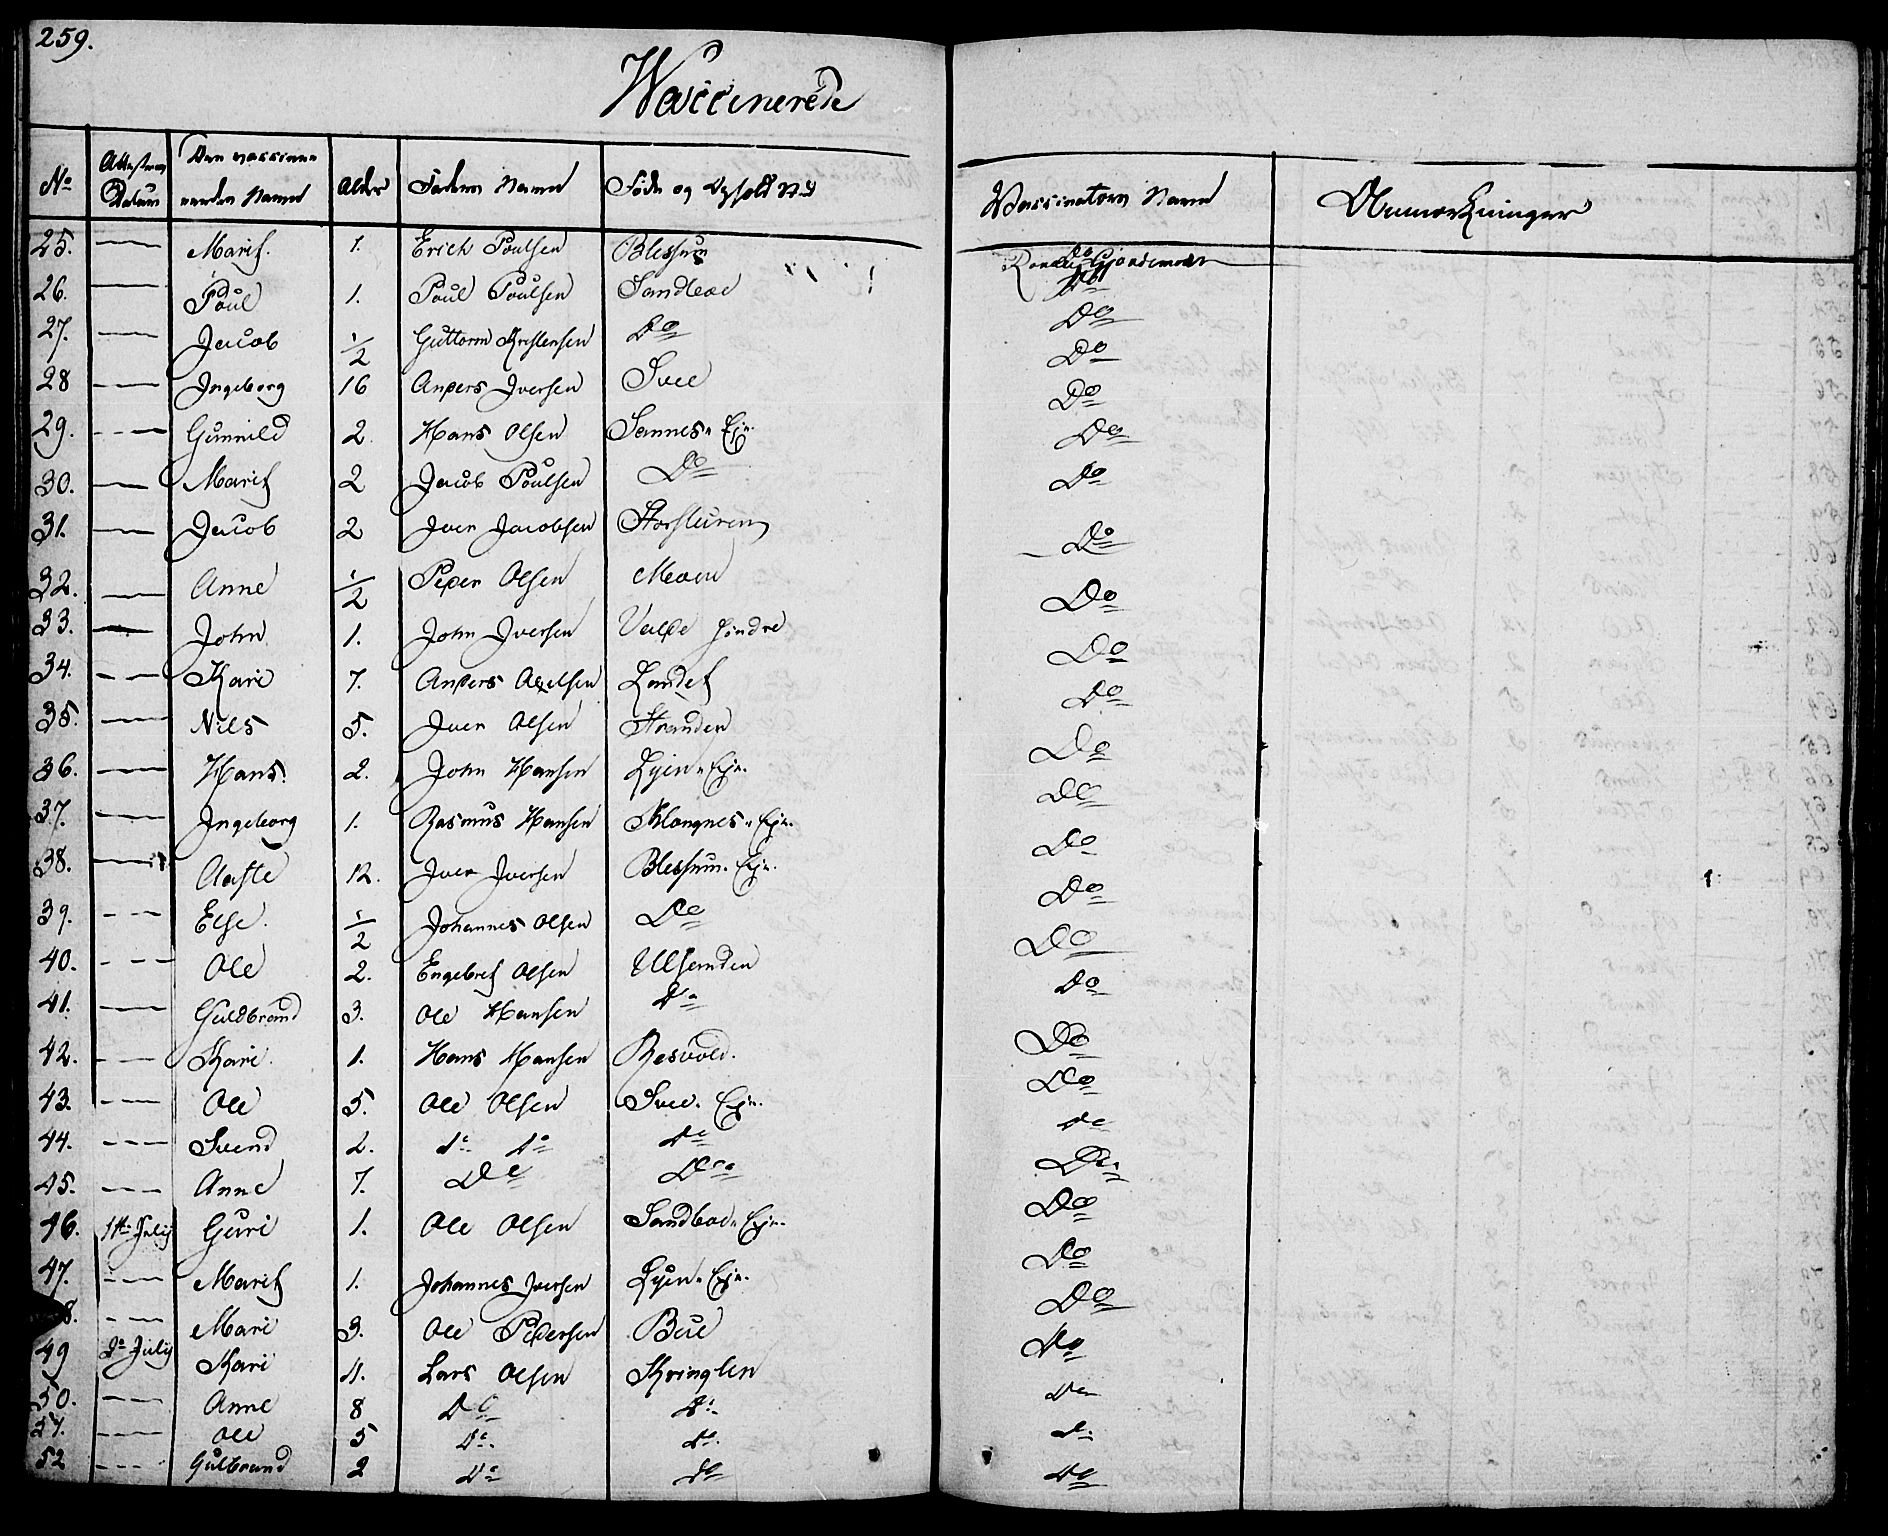 259.
Waccinerede
No Attestens Datum Den vaccine- rendes Navn Alder Faderns Navn Føde og Opholdsted Vaccinatern Navn Anmerkninger
25. — Marit. 1. Erich Poulsen Blessum Do
26. — Poul 1. Poul Poulsen Sandboe Do
27. — Jacob 1/2 Guttorm Kristensen Do Do
28 — Ingeborg 16 Anders Iversen Svee Do
29. — Gunnild 2. Hans Olsen Sonnes. Ejn. Do
30. — Marit 2 Jacob Poulsen Do Do
31. — Jacob 2 Iver Jacobsen Storsluren Do
32. — Anne 1/2 Peder Olsen Moen Do
33. — John 1. John Iversen Valde Do
34. — Kari 7. Anders Axelsen Landet Do
35. — Nils 5. Iver Olsen Stranden Do
36. — Hans. 2. John Hansen Lyen. Ejn. Do
37. — Ingeborg 1. Rasmus Hansen Klongnes. Ejn. Do
38. — Aaste 12. Iver Iversen Blessum. Ejn. Do
39. — Else. 1/2 Johannes Olsen Do Do
40. — Ole 2. Engebret Olsen Ulsanden Do
41. — Guldbrand 3. Ole Hansen Do Do
42. — Kari. 1. Hans Hansen Resvold. Do
43. — Ole 5. Ole Olsen Svee. Ejn. Do
44. — Svend 2. do do do do
45. — Anne 7. Do Do Do
46. 1ste July Guri 1. Ole Olsen Sandboe. Ejn. Do
47. — Marit 1. Johannes Iversen Lyen. Ejn. Do
8. — Mari 3. Ole Pedersen Bue Do
49 July Kari 11. Lars Olsen Kringlen Do
50. — Anne 8 Do do do
51. — Ole 5 do. do. do
52 — Gulbrand 2 do do do